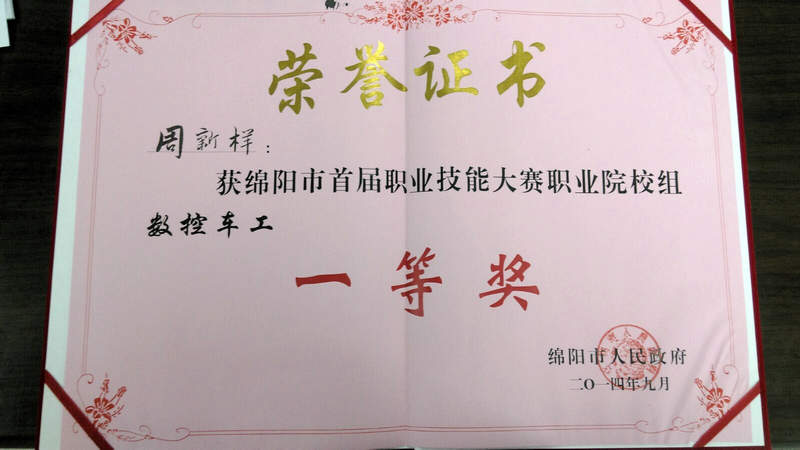 荣誉证书
周新样：
获绵阳市首届职业技能大赛职业院校组
数控车工
一等奖
绵阳市人民政府
二〇一四年九月